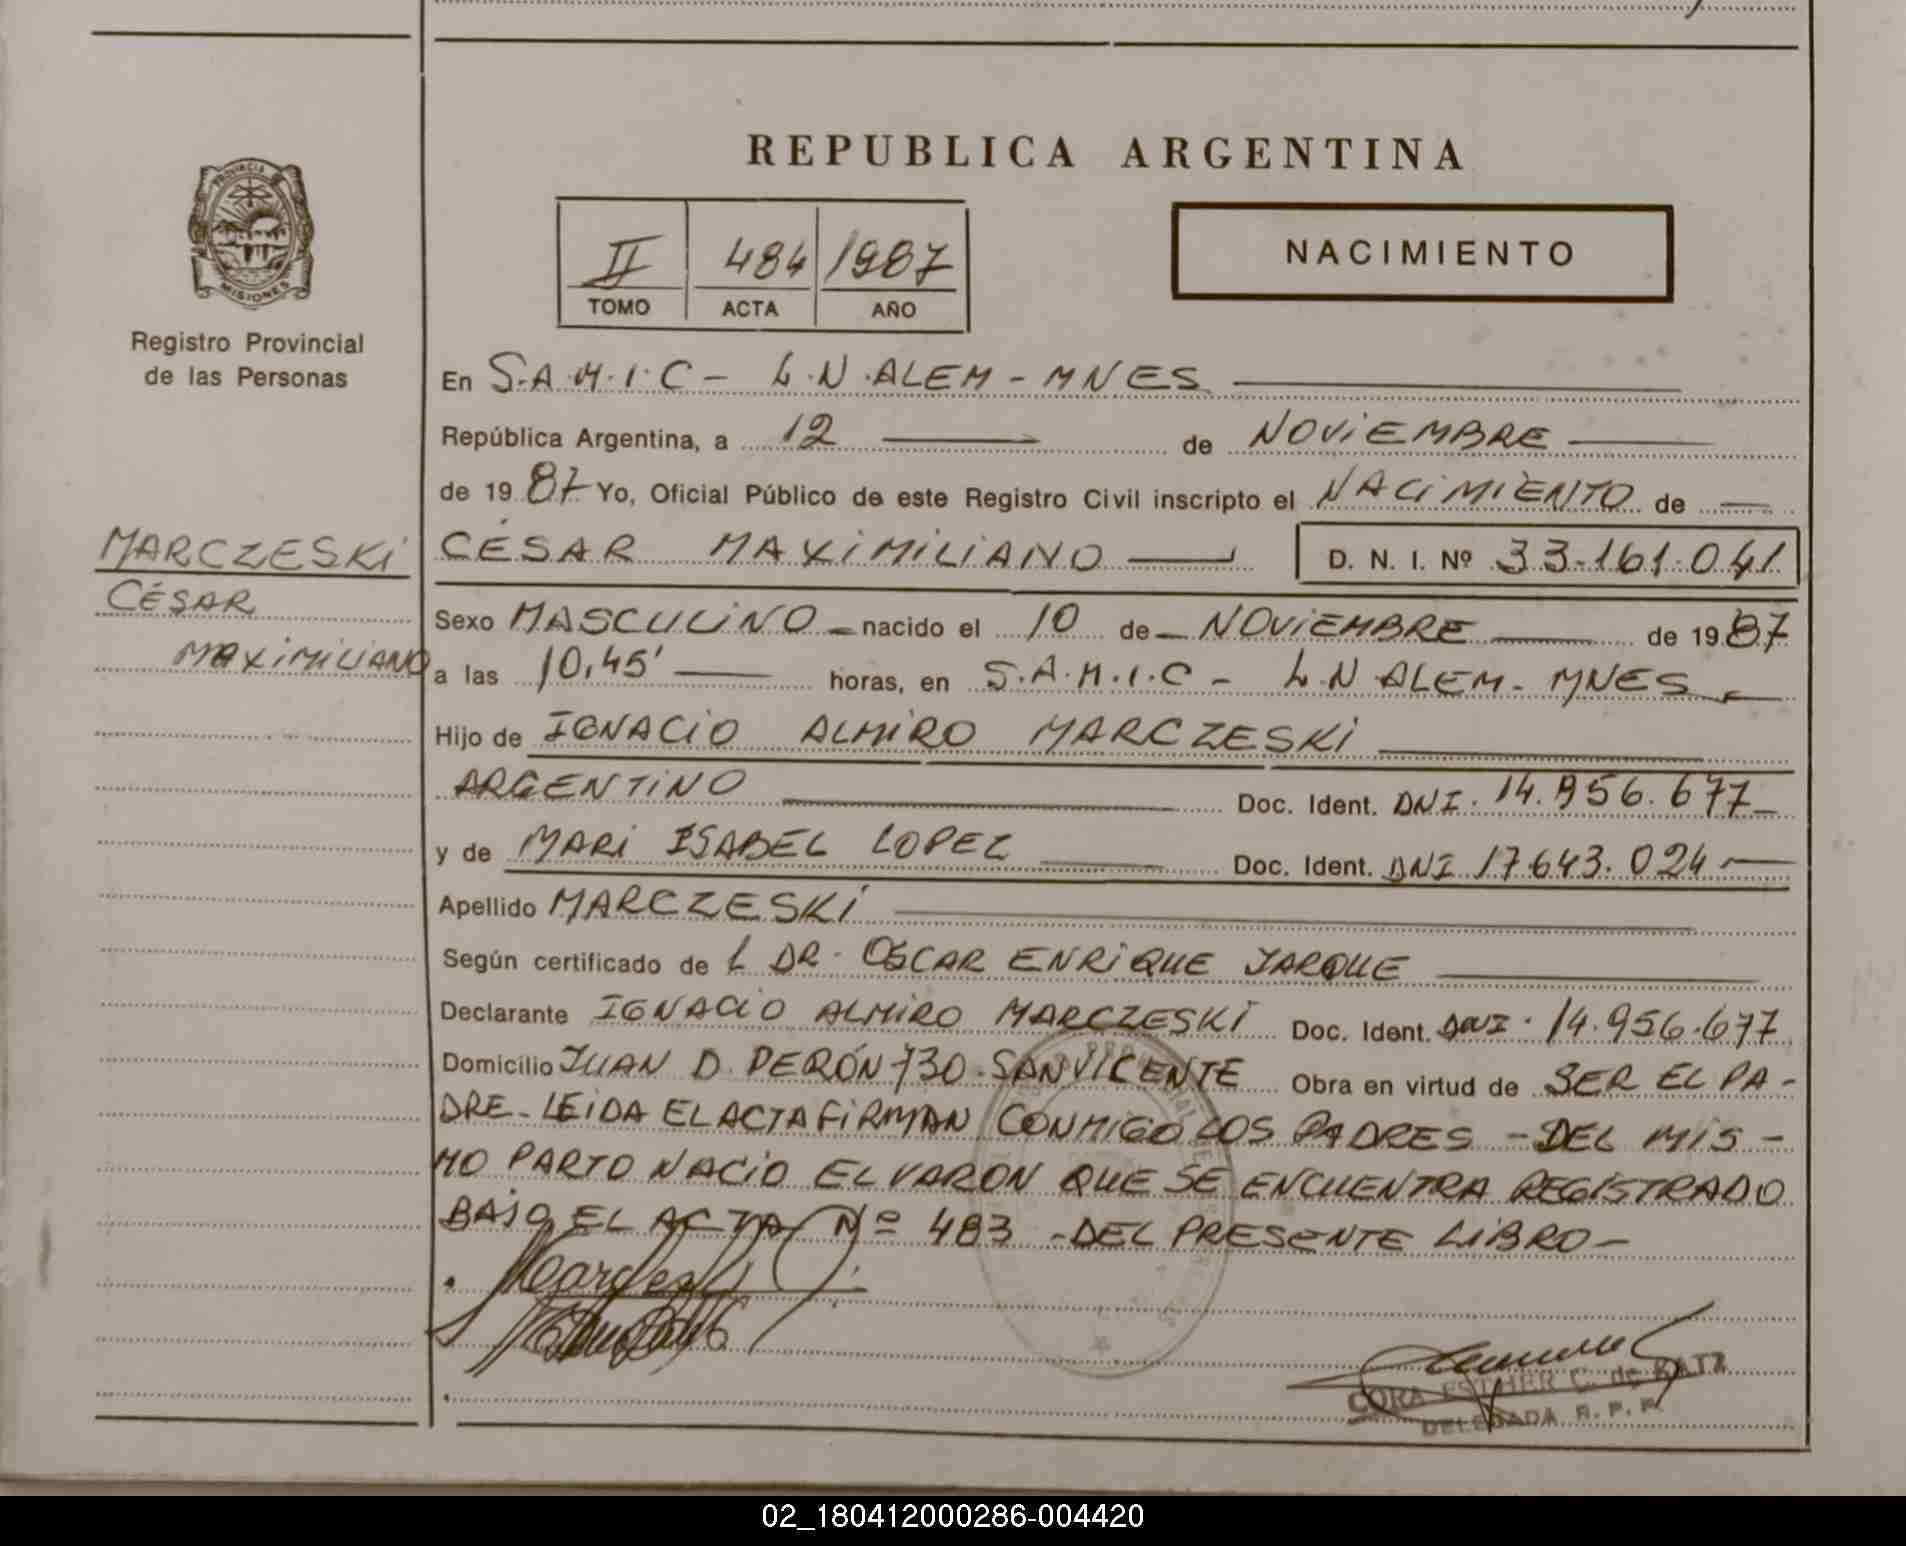 REPUBLICA ARGENTINA
PROVINCIA DE MISIONES
Registro Provincial
de las Personas
II 484 1987
TOMO ACTA AÑO
NACIMIENTO
En S.A.M.I.C - L.N.ALEM - MNES
República Argentina, a 12 de NOVIEMBRE
de 1987 Yo, Oficial Público de este Registro Civil inscripto el NACIMIENTO de
CÉSAR MAXIMILIANO D. N. I. Nº 33.161.041
MARCZESKI
CÉSAR
MAXIMILIANO
Sexo MASCULINO nacido el 10 de NOVIEMBRE de 1987
a las 10,45' horas, en S.A.M.I.C - L.N ALEM - MNES
Hijo de IGNACIO ALMIRO MARCZESKI
ARGENTINO Doc. Ident. DNI. 14.956.677
y de MARI ISABEL LOPEZ Doc. Ident. DNI 17.643.024
Apellido MARCZESKI
Según certificado de L DR. OSCAR ENRIQUE JARQUE
Declarante IGNACIO ALMIRO MARCZESKI Doc. Ident. DNI. 14.956.677
Domicilio JUAN D. PERÓN 730. SAN VICENTE Obra en virtud de SER EL PA-
DRE - LEIDA EL ACTA FIRMAN CONMIGO LOS PADRES - DEL MIS-
MO PARTO NACIO EL VARON QUE SE ENCUENTRA REGISTRADO
BAJO EL ACTA Nº 483 - DEL PRESENTE LIBRO -
CORA ESTHER C. de KATZ
DELEGADA R. P. P.
02_180412000286-004420